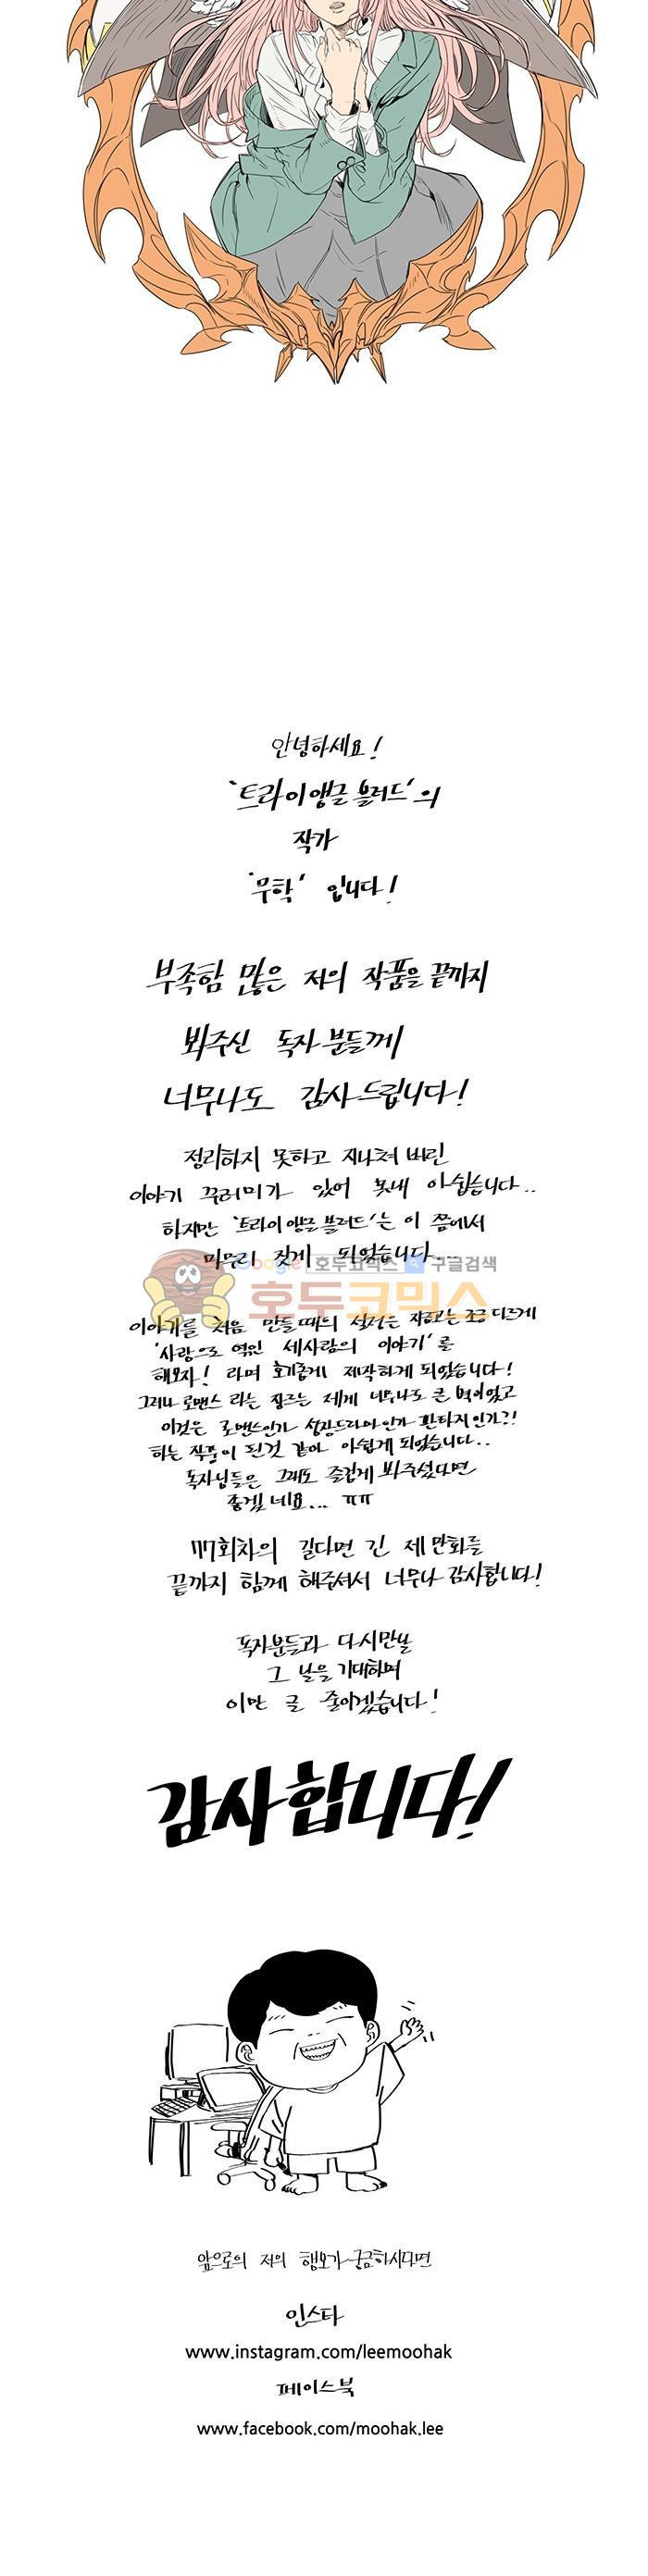 안녕하세요!
'트라이앵글 블러드'의
작가
'무학' 입니다!
부족함 많은 저의 작품을 끝까지
봐주신 독자분들께
너무나도 감사드립니다!
정리하지 못하고 지나쳐 버린
이야기 꾸러미가 있어 못내 아쉽습니다..
하지만 '트라이앵글 블러드'는 이 쯤에서
마무리 짓게 되었습니다...
Google 호두코믹스 구글검색
호두코믹스
이야기를 처음 만들때의 설정은 지금과는 조금 다르게
'사랑으로 엮인 세사람의 이야기'를
해보자! 라며 호기롭게 제작하게 되었습니다!
그러나 로맨스 라는 장르는 제게 너무나도 큰 벽이었고
이것은 로맨스인가 성장드라마인가 판타지인가?!
하는 작품이 된것 같아 아쉽게 되었습니다..
독자님들은 그래도 즐겁게 봐주셨다면
좋겠네요... ㅠㅠ
77회차의 길다면 긴 제 만화를
끝까지 함께 해주셔서 너무나 감사합니다!
독자분들과 다시만날
그 날을 기대하며
이만 글 줄이겠습니다!
감사합니다!
앞으로의 저의 행보가 궁금하시다면
인스타
www.instagram.com/leemoohak
페이스북
www.facebook.com/moohak.lee